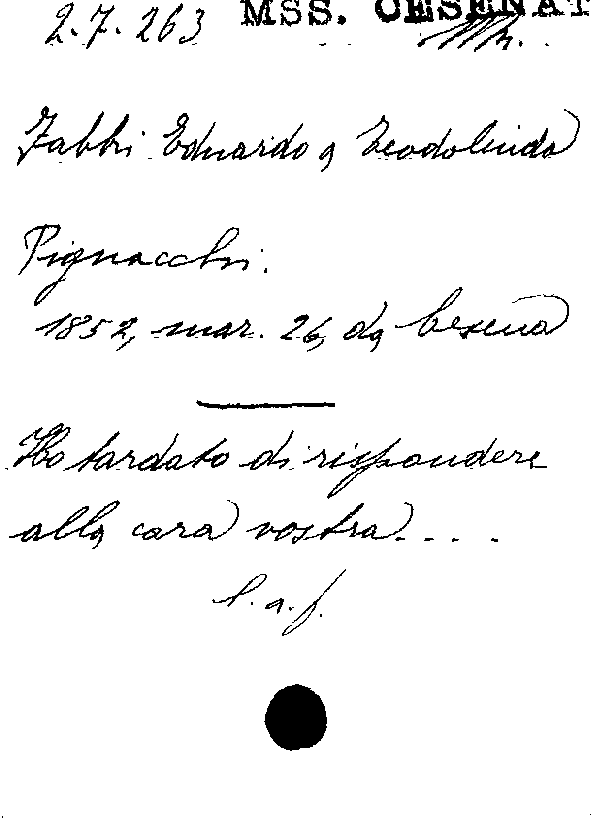 2.7.263 MSS. CESENAT
Fabbri Eduardo a Teodolinda
Pignacchi.
1852, mar. 26, da Cesena
Ho tardato di rispondere
alla cara vostra....
l. a. f.